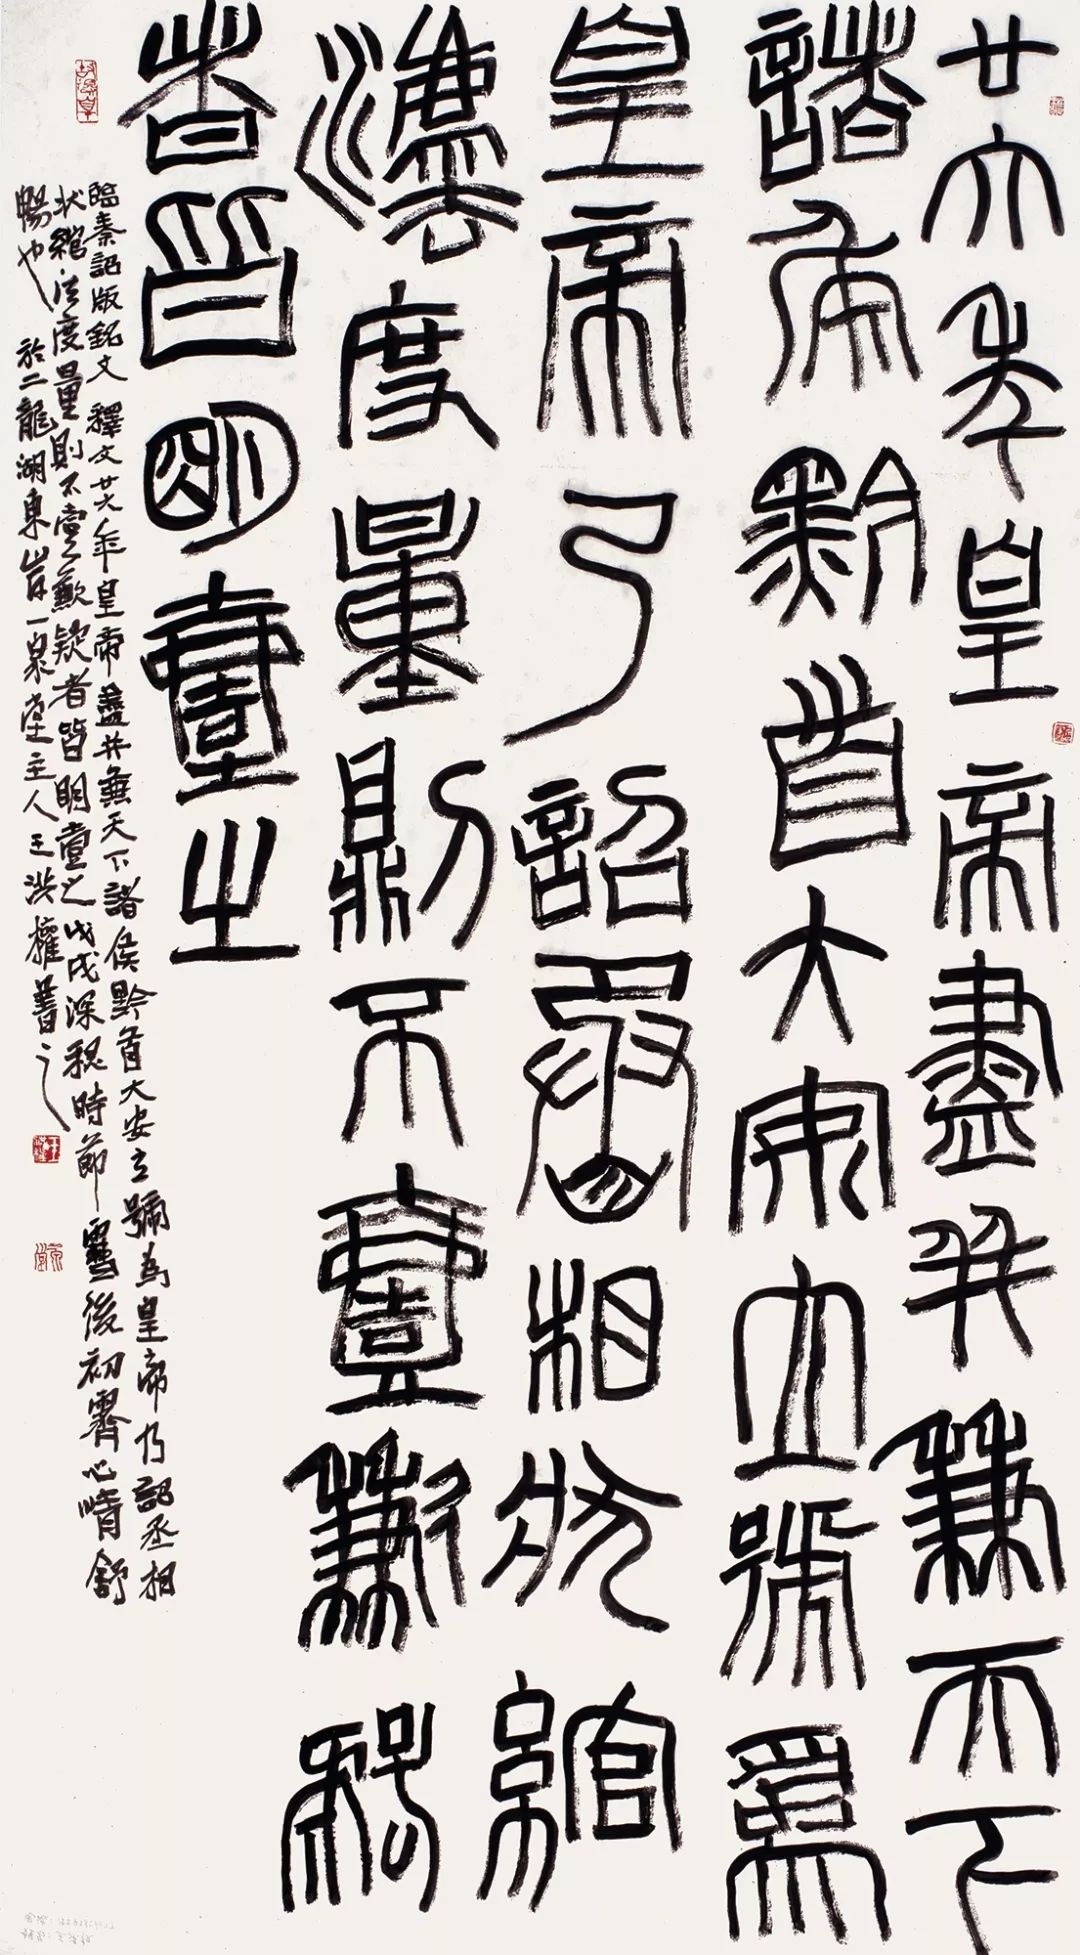 廿六年皇帝盡并兼天下
諸侯黔首大安立號為
皇帝乃詔丞相狀綰
灋度量則不壹歉疑
者皆明壹之
臨秦詔版銘文 釋文廿六年皇帝盡并兼天下諸侯黔首大安立號為皇帝乃詔丞相
狀綰法度量則不壹歉疑者皆明壹之戊戌深秋時節雪後初霽心情舒
暢也 於二龍湖東岸一泉堂主人王洪權書之